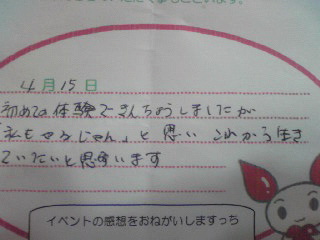 4月15日
初めての体験できんちょうしましたが
「私もやるじゃん」と思い これから生き
ていたいと思います
イベントの感想をおねがいしますっち